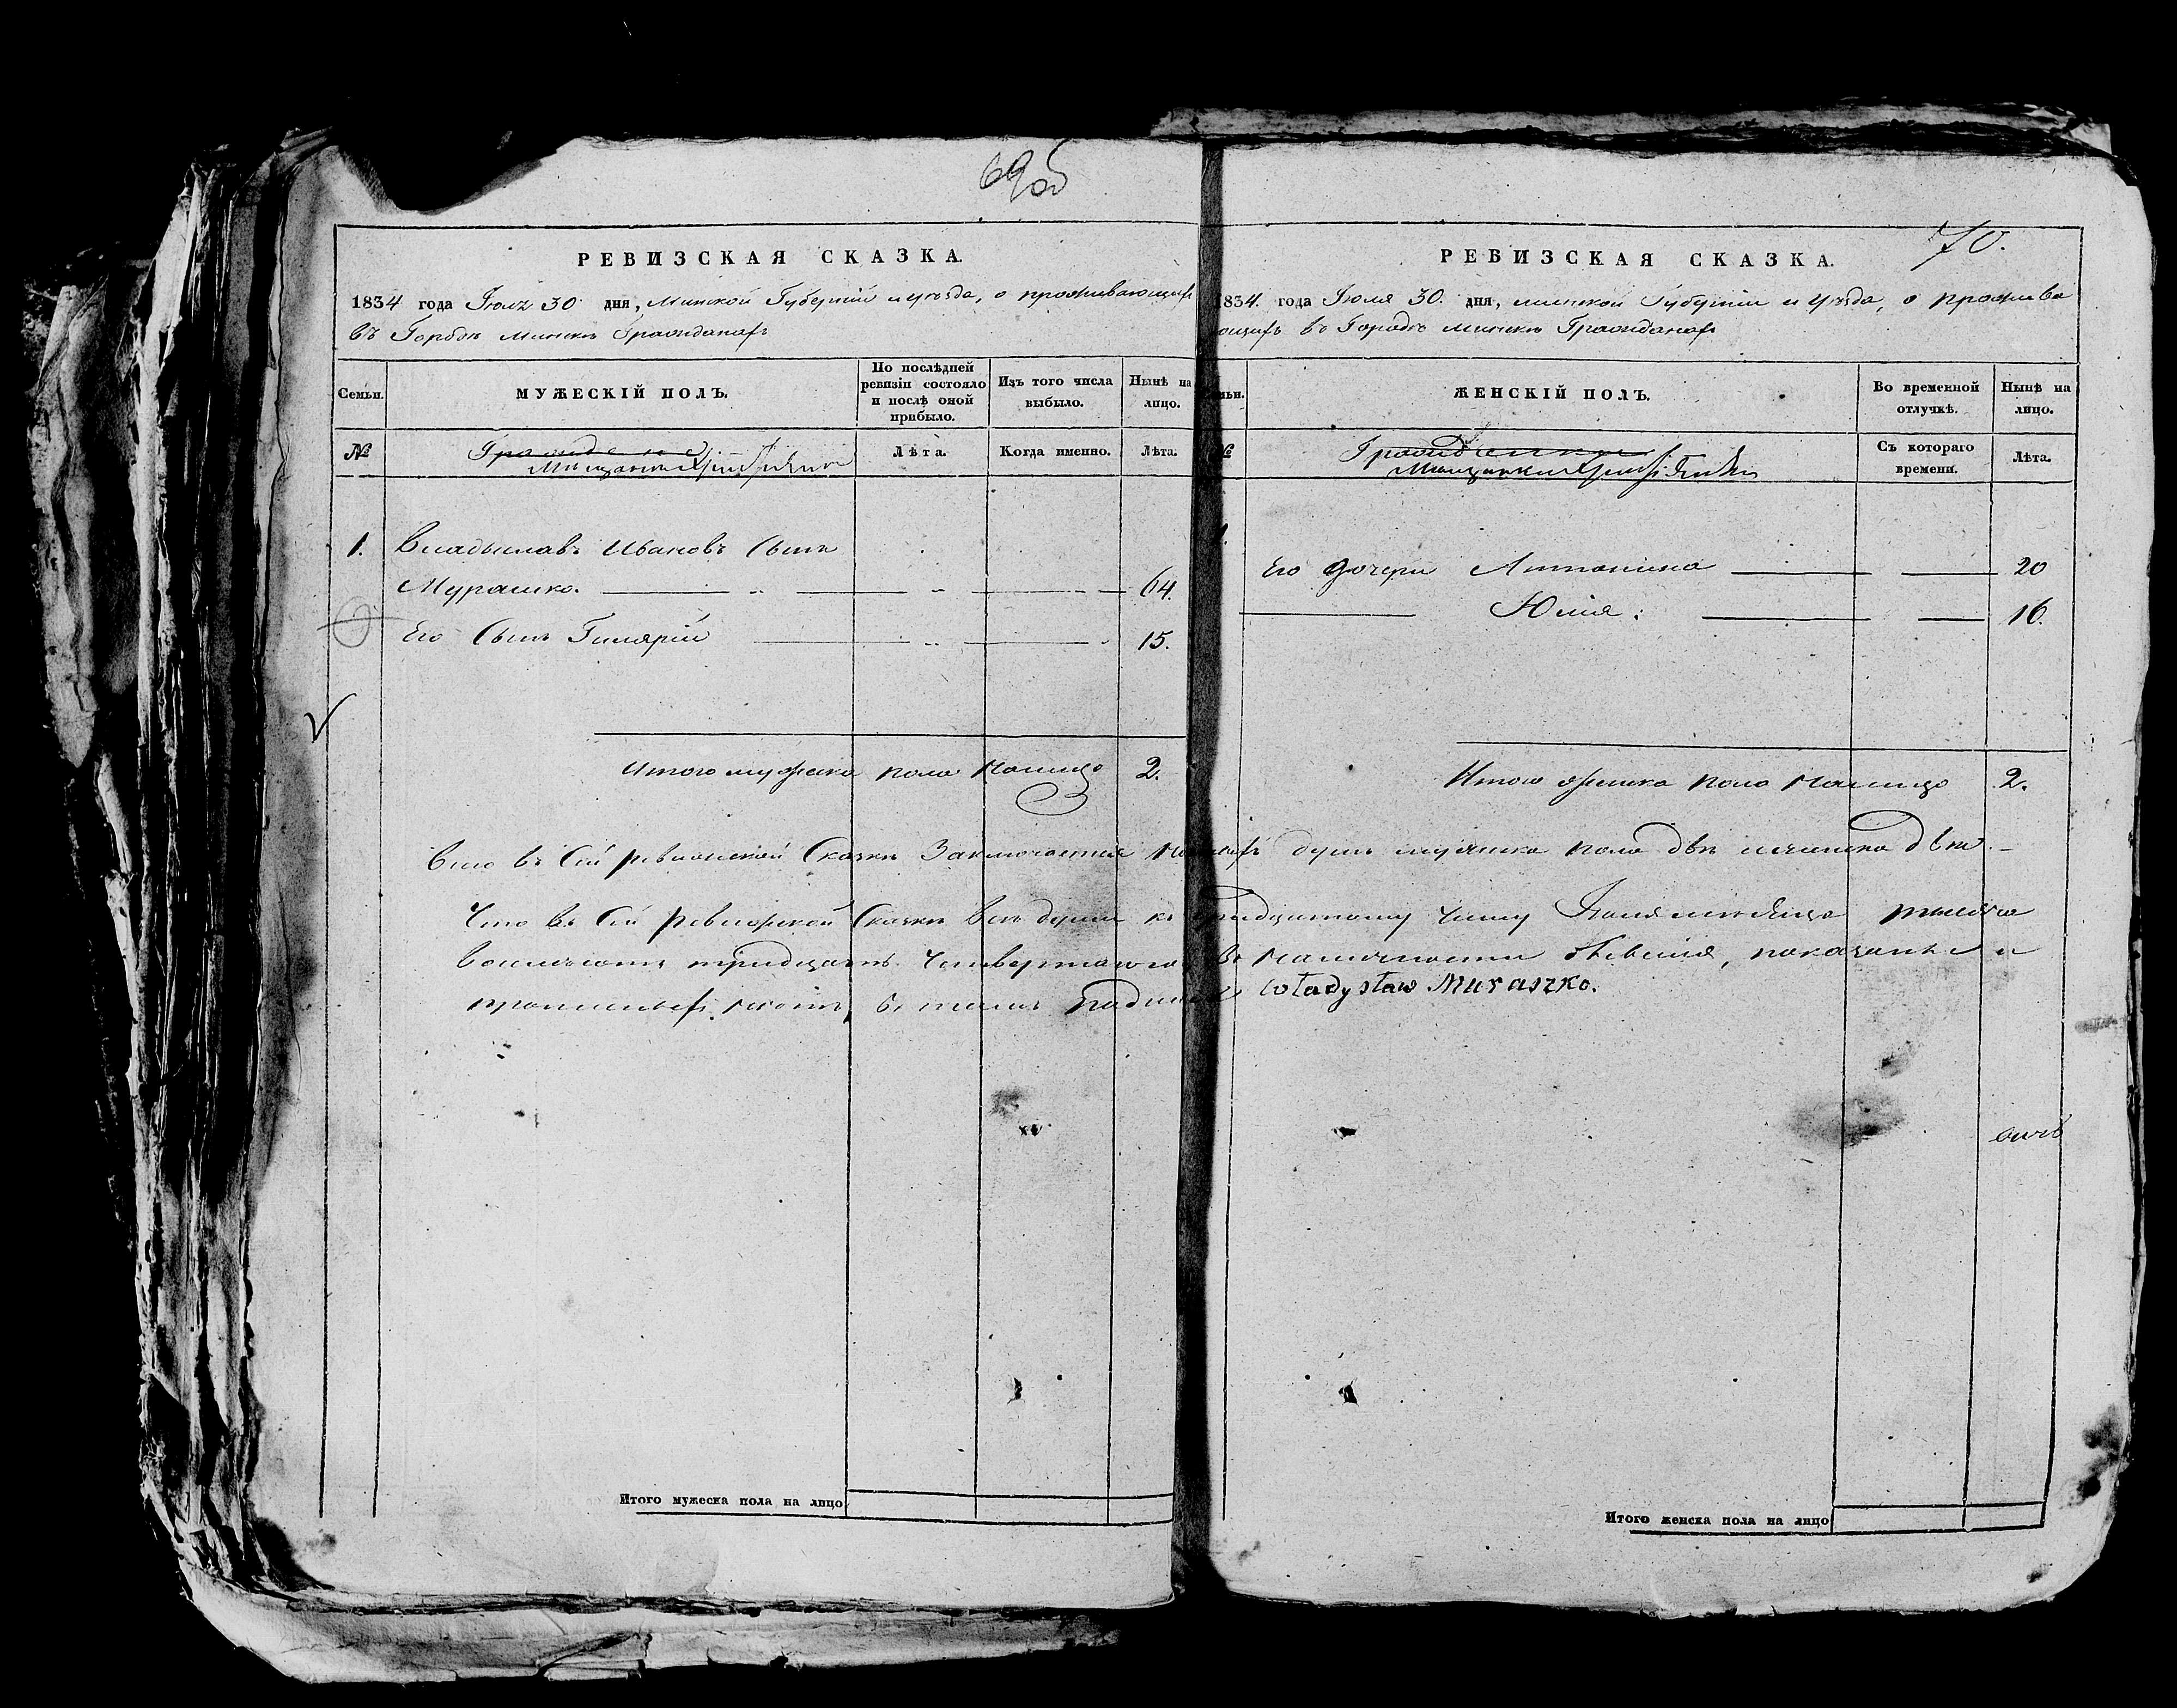 69об
РЕВИЗСКАЯ СКАЗКА.
1834 года Июля 30 дня, Минской Губерніи и уѣзда, о проживающихъ
въ Городѣ Минскѣ Гражданахъ
Семьи.
МУЖЕСКІЙ ПОЛЪ.
По послѣдней ревизіи состояло и послѣ оной прибыло.
Изъ того числа выбыло.
Нынѣ на лицо.
№
Граждане
Мещане Христіяне
Лѣта.
Когда именно.
Лѣта.
1. Владыславъ Ивановъ Сынъ
Мурашко. 64.
Его Сынъ Гилярій 15.
Итого мужеска пола налицо 2.
Итого мужеска пола на лицо
70.
РЕВИЗСКАЯ СКАЗКА.
1834. года Июля 30. дня, Минской Губерніи и уѣзда, о прожива
ющихъ въ Городѣ Минскѣ Гражданахъ
ЖЕНСКІЙ ПОЛЪ.
Во временной отлучкѣ.
Нынѣ на лицо.
№
Гражданки
Мещанки Христіянки
Съ котораго времени.
Лѣта.
1.
Его дочери Антонина 20
Юлія: 16.
Итого женска пола налицо 2.
Всего въ сей ревизской Сказкѣ Заключается душъ мужеска пола двѣ и женска двѣ.
Что въ сей Ревизской Сказкѣ всѣ души къ тридцатому числу Іюля мѣсяца тысяча
восемьсотъ тридцать Четвертаго въ наличности бывшія, показаны и
прописныхъ нѣтъ, въ томъ Władysław Muraszko.
Итого женска пола на лицо